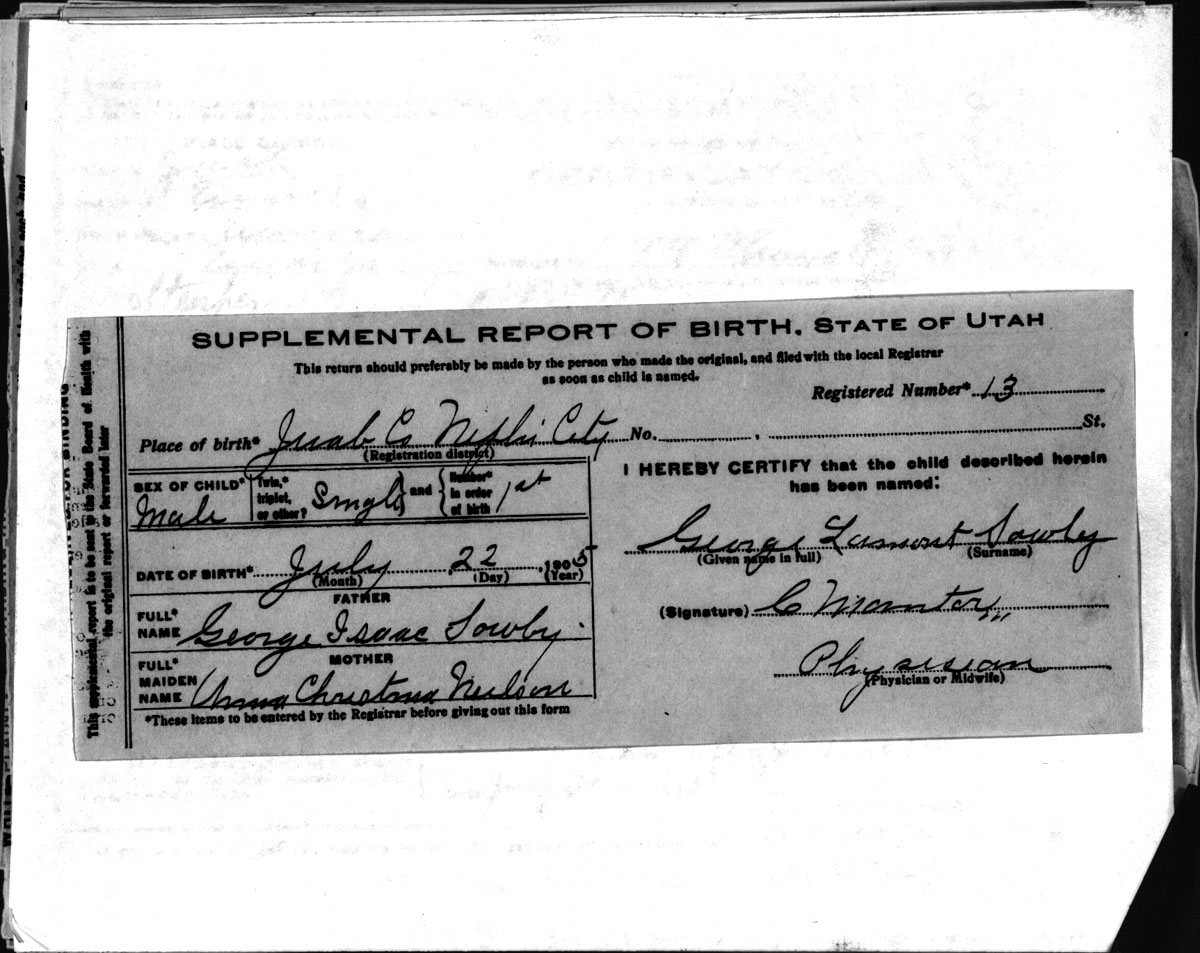 SUPPLEMENTAL REPORT OF BIRTH. STATE OF UTAH
This return should preferably be made by the person who made the original, and filed with the local Registrar
as soon as child is named.
Registered Number* 13
Place of birth* Juab Co Nephi City No. , St.
(Registration district)
SEX OF CHILD* Male
Twin,* triplet, or other? Single and Number* in order of birth 1st
DATE OF BIRTH* July 22, 1905
(Month) (Day) (Year)
FATHER
FULL* NAME George Isaac Sowby
MOTHER
FULL* MAIDEN NAME Anna Christina Neilson
*These items to be entered by the Registrar before giving out this form
I HEREBY CERTIFY that the child described herein
has been named:
George Lamont Sowby
(Given name in full) (Surname)
(Signature)
Physician
(Physician or Midwife)
This supplemental report to be sent to the State Board of Health with
the original report or forwarded later